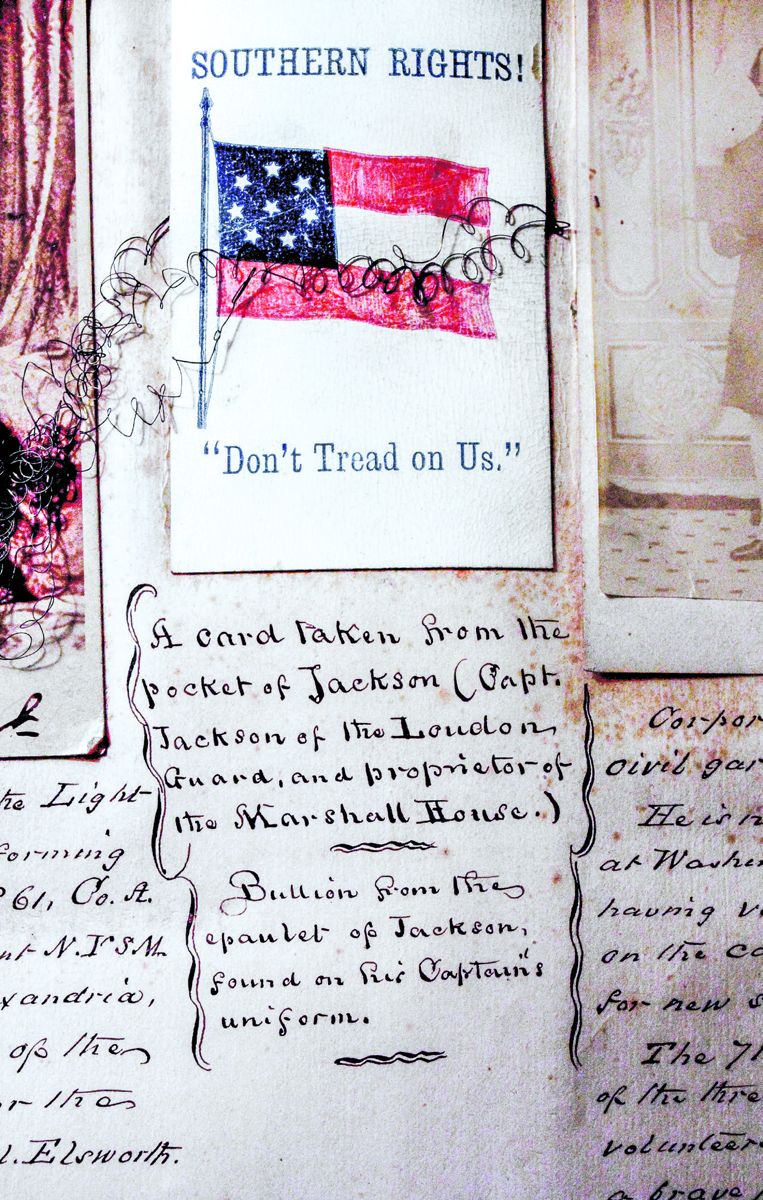 SOUTHERN RIGHTS!
"Don't Tread on Us."
A card taken from the
pocket of Jackson (Capt.
Jackson of the Loudon,
Guard, and proprietor of
the Marshall House.)
Bullion from the
epaulet of Jackson,
found on his Captain's
uniform.
the Light
forming
61, Co. A.
N.Y.S.M.
of the
the
Elsworth.
civil
He is
at
having
on the
for new
The
of the
a brave